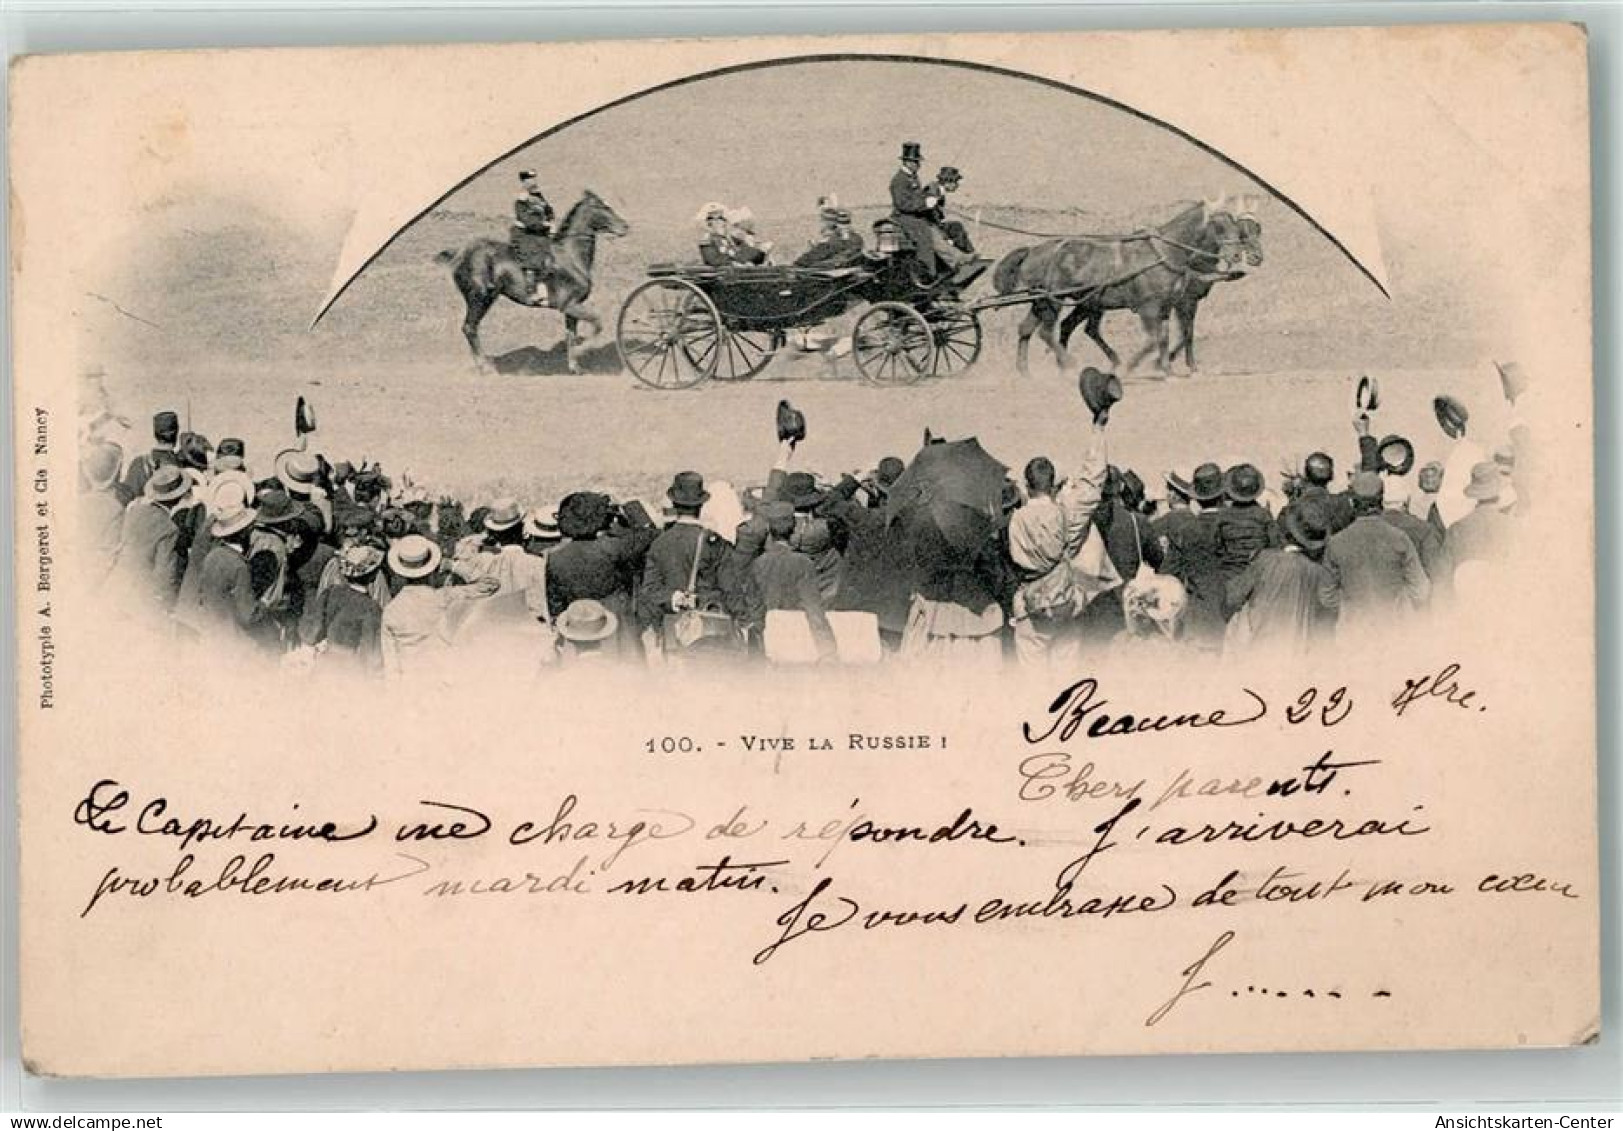 Phototypie A. Bergeret et Cie Nancy
100. - VIVE LA RUSSIE !
Beaune 22 7bre.
Chers parents.
Le Capitaine me charge de répondre. J'arriverai
probablement mardi matin.
Je vous embrasse de tout mon cœur
J.......
Ansichtskarten-Center